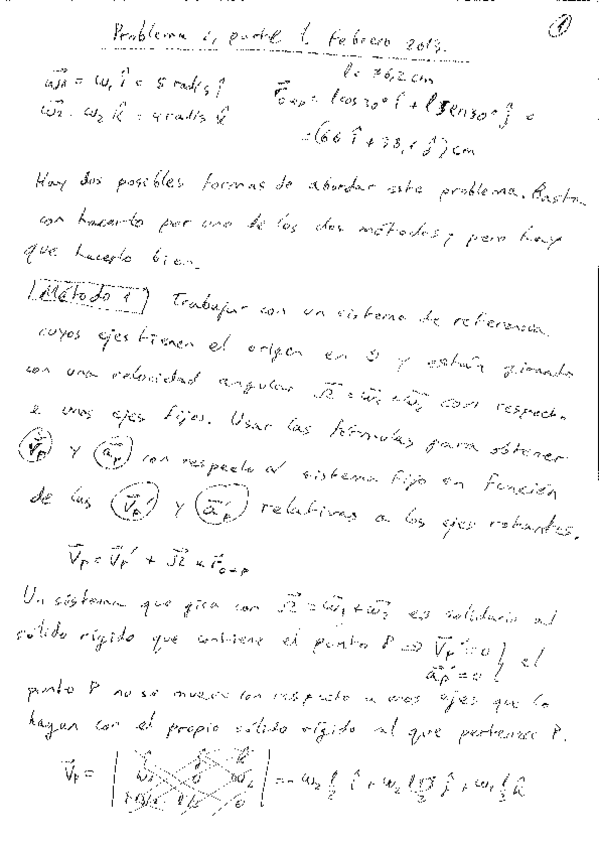 ①
Problema 1, parte 1, Febrero 2013.
ω⃗₁ = ω₁ î = 5 rad/s î
l = 76,2 cm
ω⃗₂ = ω₂ k̂ = 4 rad/s k̂
r⃗O→P = l cos 30° î + l sen 30° ĵ =
= (66 î + 38,1 ĵ) cm
Hay dos posibles formas de abordar este problema. Basta
con hacerlo por uno de los dos métodos, pero hay
que hacerlo bien.
Método 1 Trabajar con un sistema de referencia
cuyos ejes tienen el origen en O y están girando
con una velocidad angular Ω⃗ = ω⃗₁ + ω⃗₂ con respecto
a unos ejes fijos. Usar las fórmulas para obtener
v⃗P y a⃗P con respecto al sistema fijo en función
de las v⃗P' y a⃗P' relativas a los ejes rotantes.
v⃗P = v⃗P' + Ω⃗ × r⃗O→P
Un sistema que gira con Ω⃗ = ω⃗₁ + ω⃗₂ es solidario al
sólido rígido que contiene el punto P ⇒ v⃗P' = 0 } el
a⃗P' = 0
punto P no se mueve con respecto a unos ejes que lo
hagan con el propio sólido rígido al que pertenece P.
v⃗P = | î ĵ k̂
ω₁ 0 ω₂
l√3/2 l/2 0 | = -ω₂ l/2 î + ω₂ l√3/2 ĵ + ω₁ l/2 k̂